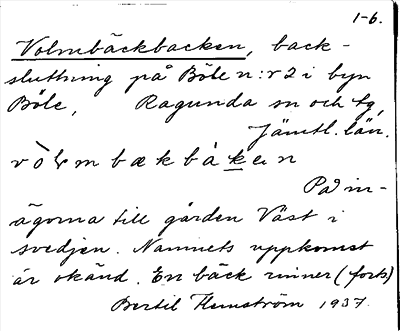 1-6.
Volmbäckbacken, back-
sluttning på Böle n:r 2 i byn
Böle, Ragunda sn och tg,
Jämtl. län.
På in-
ägorna till gården Väst i
svedjen. Namnets uppkomst
är okänd. En bäck rinner (forts)
Bertil Flemström 1937.